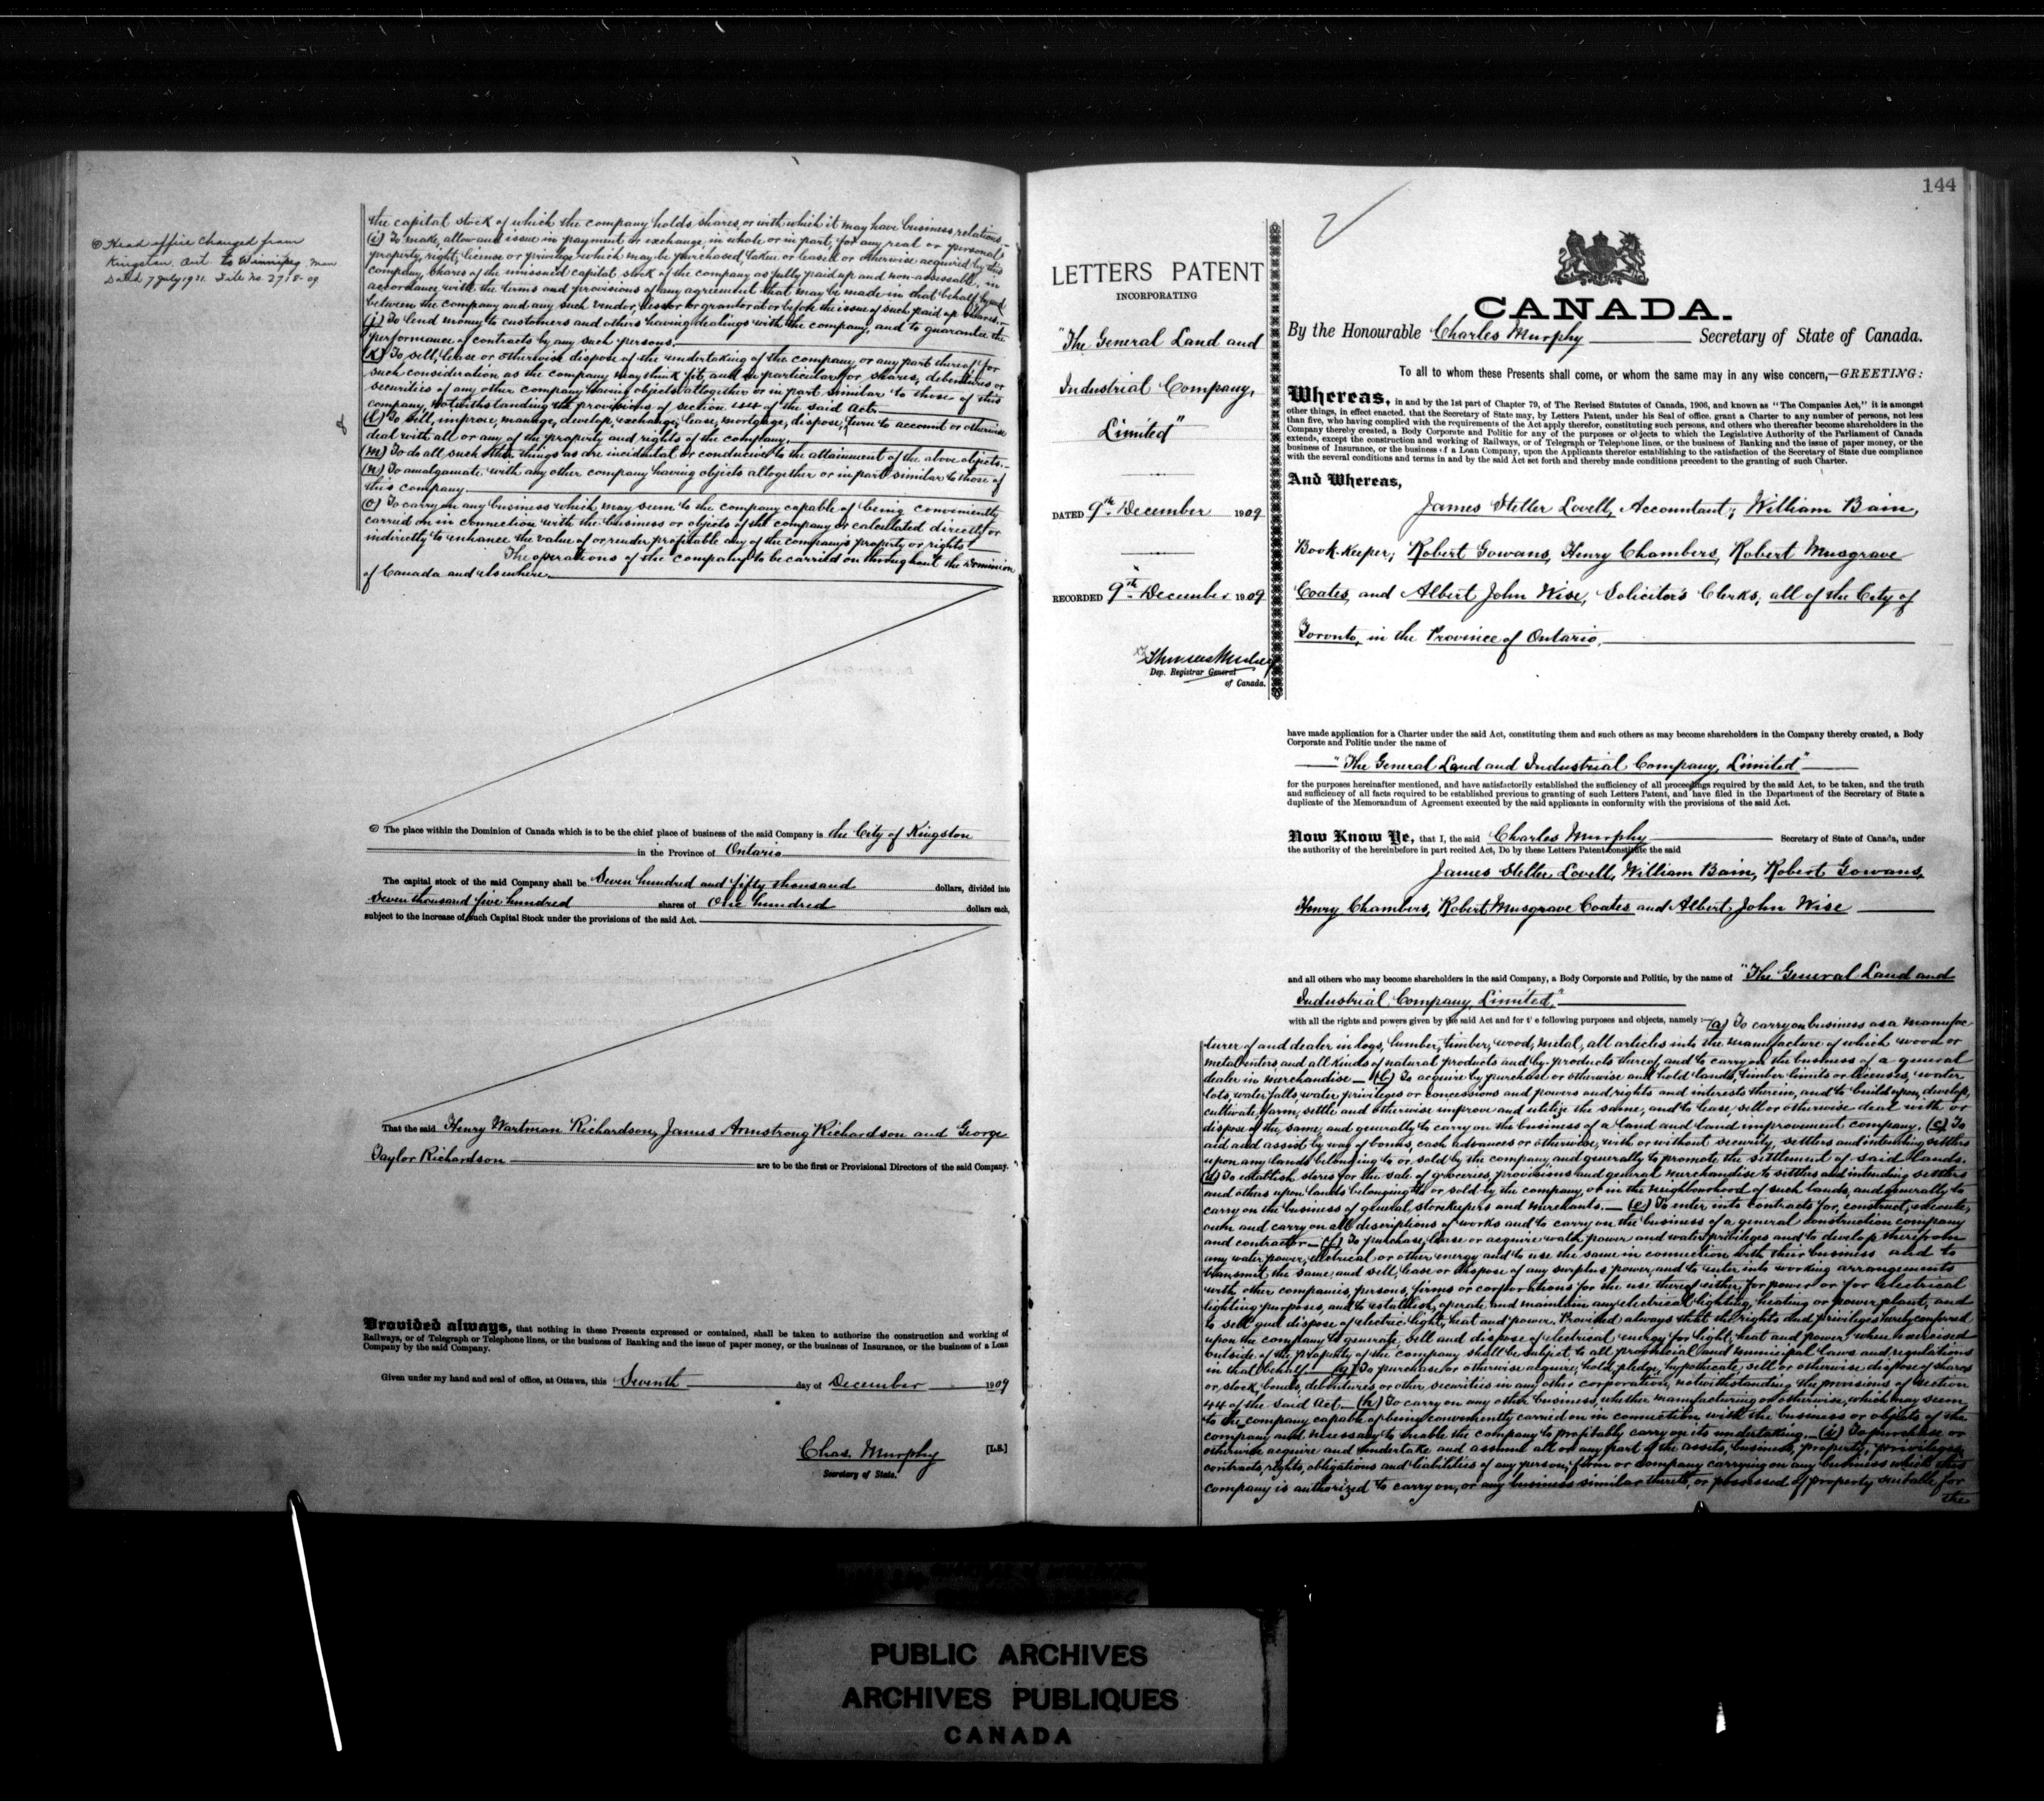 © Head office changed from
Kingston, Ont. to Winnipeg Man
Dated 7 July 1931. File No. 2718-09
the capital stock of which the company holds shares, or with which it may have business relations.
(i) To make, allow and issue in payment or exchange, in whole or in part, for any real or personal
property, right, license or privilege which may be purchased, taken or leased or otherwise acquired by this
company, shares of the unissued capital stock of the company as fully paid up and non-assessable, in
accordance with the terms and provisions of any agreement that may be made in that behalf by and
between the company and any such vendor, lessor or grantor at or before the issue of such paid up shares.
(j) To lend money to customers and others having dealings with the company, and to guarantee the
performance of contracts by any such persons.
(k) To sell, lease or otherwise dispose of the undertaking of the company or any part thereof for
such consideration as the company may think fit, and in particular for shares, debentures or
securities of any other company having objects altogether or in part similar to those of this
company, notwithstanding the provisions of section 44 of the said Act.
(l) To sell, improve, manage, develop, exchange, lease, mortgage, dispose, turn to account or otherwise
deal with all or any of the property and rights of the company.
(m) To do all such other things as are incidental or conducive to the attainment of the above objects.
(n) To amalgamate with any other company having objects altogether or in part similar to those of
this company.
(o) To carry on any business which may seem to the company capable of being conveniently
carried on in connection with the business or objects of the company or calculated directly or
indirectly to enhance the value of or render profitable any of the company's property or rights
The operations of the company to be carried on throughout the Dominion
of Canada and elsewhere.
© The place within the Dominion of Canada which is to be the chief place of business of the said Company is the City of Kingston
in the Province of Ontario
The capital stock of the said Company shall be Seven hundred and fifty thousand dollars, divided into
Seven thousand five hundred shares of One hundred dollars each,
subject to the increase of such Capital Stock under the provisions of the said Act.
That the said Henry Wartman Richardson, James Armstrong Richardson and George
Taylor Richardson are to be the first or Provisional Directors of the said Company.
Provided always, that nothing in these Presents expressed or contained, shall be taken to authorize the construction and working of
Railways, or of Telegraph or Telephone lines, or the business of Banking and the issue of paper money, or the business of Insurance, or the business of a Loan
Company by the said Company.
Given under my hand and seal of office, at Ottawa, this Seventh day of December 1909
Chas. Murphy [L.S.]
Secretary of State.
144
LETTERS PATENT
INCORPORATING
"The General Land and
Industrial Company,
Limited"
DATED 9th December 1909
RECORDED 9th December 1909
Thomas Mulvey
Dep. Registrar General
of Canada.
CANADA.
By the Honourable Charles Murphy Secretary of State of Canada.
To all to whom these Presents shall come, or whom the same may in any wise concern,—GREETING:
Whereas, in and by the 1st part of Chapter 79, of The Revised Statutes of Canada, 1906, and known as "The Companies Act," it is amongst
other things, in effect enacted, that the Secretary of State may, by Letters Patent, under his Seal of office, grant a Charter to any number of persons, not less
than five, who having complied with the requirements of the Act apply therefor, constituting such persons, and others who thereafter become shareholders in the
Company thereby created, a Body Corporate and Politic for any of the purposes or objects to which the Legislative Authority of the Parliament of Canada
extends, except the construction and working of Railways, or of Telegraph or Telephone lines, or the business of Banking and the issue of paper money, or the
business of Insurance, or the business of a Loan Company, upon the Applicants therefor establishing to the satisfaction of the Secretary of State due compliance
with the several conditions and terms in and by the said Act set forth and thereby made conditions precedent to the granting of such Charter.
And Whereas,
James Steller Lovell, Accountant; William Bain,
Book-keeper; Robert Gowans, Henry Chambers, Robert Musgrave
Coates, and Albert John Wise, Solicitor's Clerks; all of the City of
Toronto, in the Province of Ontario.
have made application for a Charter under the said Act, constituting them and such others as may become shareholders in the Company thereby created, a Body
Corporate and Politic under the name of
"The General Land and Industrial Company, Limited"
for the purposes hereinafter mentioned, and have satisfactorily established the sufficiency of all proceedings required by the said Act, to be taken, and the truth
and sufficiency of all facts required to be established previous to granting of such Letters Patent, and have filed in the Department of the Secretary of State a
duplicate of the Memorandum of Agreement executed by the said applicants in conformity with the provisions of the said Act.
Now Know Ye, that I, the said Charles Murphy Secretary of State of Canada, under
the authority of the hereinbefore in part recited Act, Do by these Letters Patent constitute the said
James Steller Lovell, William Bain, Robert Gowans,
Henry Chambers, Robert Musgrave Coates and Albert John Wise
and all others who may become shareholders in the said Company, a Body Corporate and Politic, by the name of "The General Land and
Industrial Company, Limited,"
with all the rights and powers given by the said Act and for the following purposes and objects, namely:—(a) To carry on business as a manufac-
turer of and dealer in logs, lumber, timber, wood, metal, all articles into the manufacture of which wood or
metal enters and all kinds of natural products and by-products thereof, and to carry on the business of a general
dealer in merchandise — (b) To acquire by purchase or otherwise and hold lands, timber limits or licenses, water
lots, water falls, water privileges or concessions and powers and rights and interests therein, and to build upon, develop,
cultivate, farm, settle and otherwise improve and utilize the same, and to lease, sell or otherwise deal with or
dispose of the same, and generally to carry on the business of a land and land improvement company. (c) To
aid and assist by way of bonus, cash advances or otherwise, with or without security, settlers and intending settlers
upon any lands belonging to or sold by the company and generally to promote the settlement of said lands.
(d) To establish stores for the sale of groceries, provisions and general merchandise to settlers and intending settlers
and others upon lands belonging to or sold by the company, or in the neighbourhood of such lands, and generally to
carry on the business of general storekeepers and merchants. — (e) To enter into contracts for, construct, execute,
own and carry on all descriptions of works and to carry on the business of a general construction company
and contractor — (f) To purchase, lease or acquire water power and water privileges and to develop therefrom
any water power, electrical or other energy and to use the same in connection with their business and to
transmit the same, and sell, lease or dispose of any surplus power, and to enter into working arrangements
with other companies, persons, firms or corporations for the use thereof either for power or for electrical
lighting purposes, and to establish, operate and maintain any electrical lighting, heating or power plant, and
to sell and dispose of electric light, heat and power. Provided always that the rights and privileges hereby conferred
upon the company to generate, sell and dispose of electrical energy for light, heat and power when exercised
outside of the property of the company shall be subject to all provincial and municipal laws and regulations
in that behalf. (g) To purchase or otherwise acquire, hold, pledge, hypothecate, sell or otherwise dispose of shares
or stock, bonds, debentures or other securities in any other corporation, notwithstanding the provisions of section
44 of the said Act. — (h) To carry on any other business, whether manufacturing or otherwise, which may seem
to the company capable of being conveniently carried on in connection with the business or objects of the
company and necessary to enable the company to profitably carry on its undertaking. — (i) To purchase or
otherwise acquire and undertake and assume all or any part of the assets, business, property, privileges,
contracts, rights, obligations and liabilities of any person, firm or company carrying on any business which this
company is authorized to carry on, or any business similar thereto, or possessed of property suitable for
the
PUBLIC ARCHIVES
ARCHIVES PUBLIQUES
CANADA